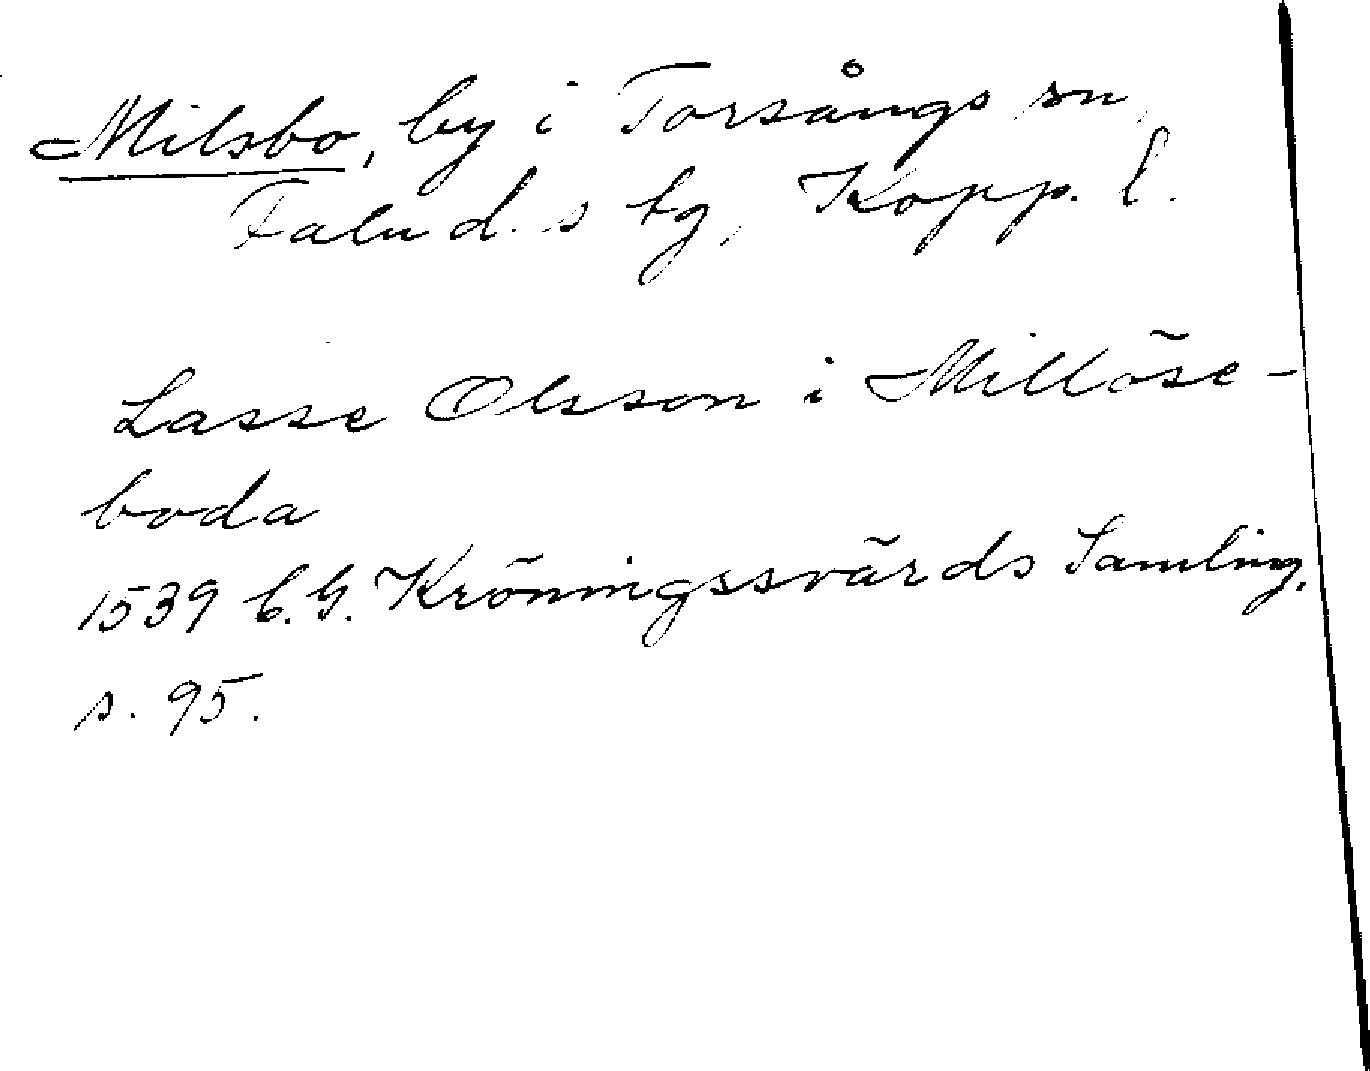 Milsbo, by i Torsångs sn,
Falu d. s tg, Kopp. l.
Lasse Olsson i Millöse-
boda
1539 C.G. Kröningssvärds Samling,
s. 95.